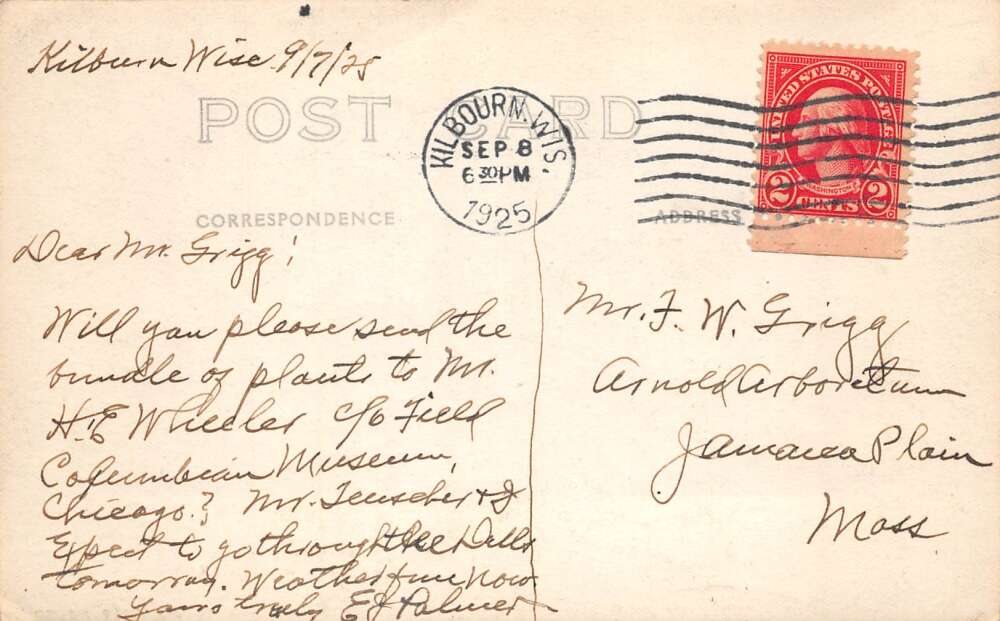 Kilburn Wisc. 9/7/25
POST CARD
KILBOURN. WIS.
SEP 8
6 30 PM
1925
UNITED STATES POSTAGE
WASHINGTON
2 CENTS 2
CORRESPONDENCE
ADDRESS
Dear Mr. Grigg!
Will you please send the
bundle of plants to Mr.
H.E Wheeler c/o Field
Columbian Museum,
Chicago? Mr. Teuscher & I
Expect to go through the Dells
tomorrow. Weather fine now.
Yours truly E J Palmer
Mr. F. W. Grigg
Arnold Arboretum
Jamaica Plain
Mass